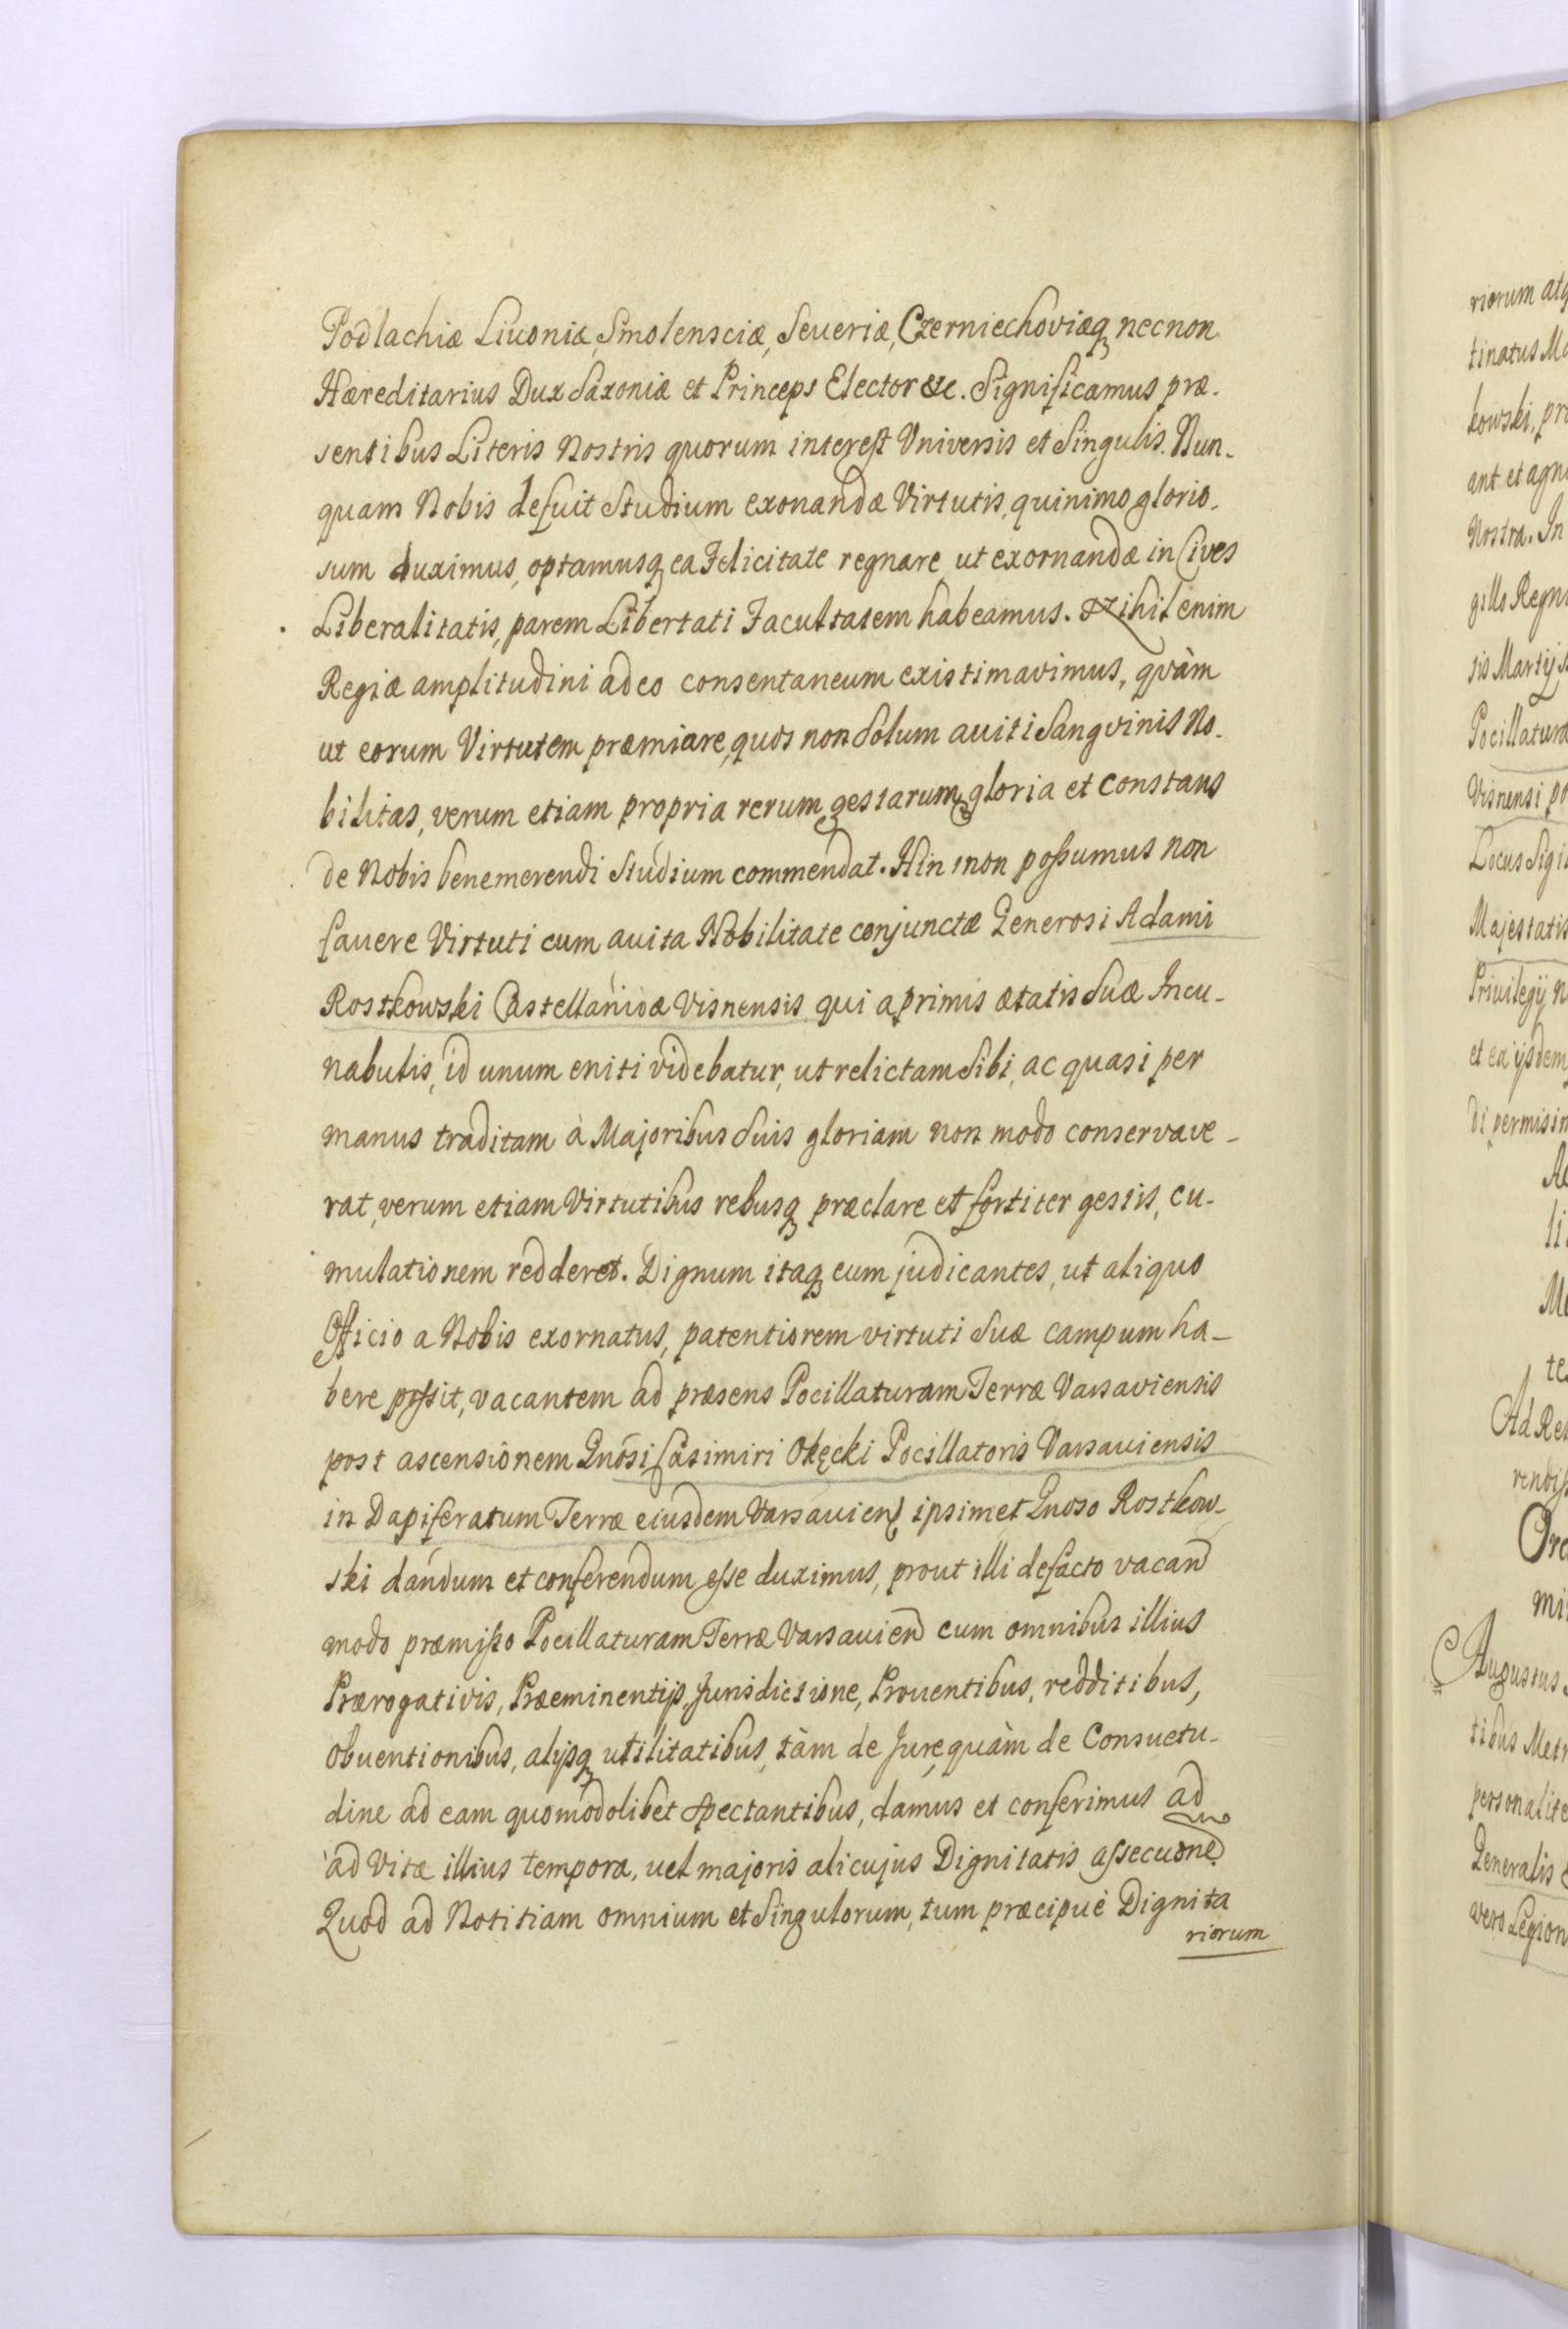 Podlachiæ Livoniæ, Smolensciæ, Severiæ, Czerniechoviæq, necnon
Hæreditarius Dux Saxoniæ et Princeps Elector &c. Significamus præ-
sentibus Literis Nostris quorum interest Universis et Singulis. Nun-
quam Nobis defuit Studium exonandæ Virtutis, quinimo glorio-
sum duximus, optamusq ea Felicitate regnare, ut exornandæ in Cives
Liberalitatis, parem Libertati Facultatem habeamus. Nihil enim
Regiæ amplitudini adeo consentaneum existimavimus, qvàm
ut eorum Virtutem præmiare, quos non Solum aviti Sangvinis No-
bilitas, verum etiam propria rerum gestarum gloria et constans
de Nobis benemerendi Studium commendat. Hin non possumus non
favere Virtuti cum avita Nobilitate conjunctæ Generosi Adami
Rostkowski Castellanidæ Visnensis, qui a primis ætatis Suæ Incu-
nabulis, id unum eniti videbatur, ut relictam Sibi, ac quasi per
manus traditam à Majoribus Suis gloriam non modo conservave-
rat, verum etiam Virtutibus rebusq præclare et fortiter gestis, cu-
mulationem redderet. Dignum itaq eum judicantes, ut aliquo
Officio a Nobis exornatus, patentiorem virtuti Suæ campum ha-
bere possit, vacantem ad præsens Pocillaturam Terræ Varsaviensis
post ascensionem Gnosi Casimiri Okęcki Pocillatoris Varsaviensis
in Dapiferatum Terræ eiusdem Varsavien ipsimet Gnoso Rostkow-
ski dandum et conferendum esse duximus, prout illi defacto vacan
modo præmisso Pocillaturam Terræ Varsavien cum omnibus illius
Prærogativis, Præeminentijs, Jurisdictione, Proventibus, redditibus,
obventionibus, alijsq utilitatibus, tàm de Jure, quàm de Consuetu-
dine ad eam quomodolibet spectantibus, damus et conferimus ad
ad Vitæ illius tempora, vel majoris alicujus Dignitatis assecuone
Quod ad Notitiam omnium et Singulorum, tum præcipuè Dignita
riorum
riorum atq
tinatus Ma
kowski, pro
ant et agn
Nostra. In
gillo Regni
tis Martij
Pocillatura
Visnensi po
Locus Sigil
Majestatis
Privilegij N
et ea ijsdem
di permisim
li
te
Ad Re
rendiss
mi
Augustus
tibus Metr
personalite
Generalis
vero Legion